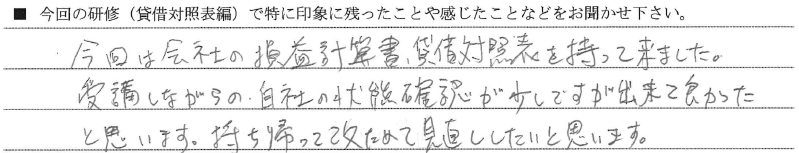 ■ 今回の研修（貸借対照表編）で特に印象に残ったことや感じたことなどをお聞かせ下さい。
今回は会社の損益計算書、貸借対照表を持って来ました。
受講しながらの自社の状態確認が少しですが出来て良かった
と思います。持ち帰って改ためて見直ししたいと思います。